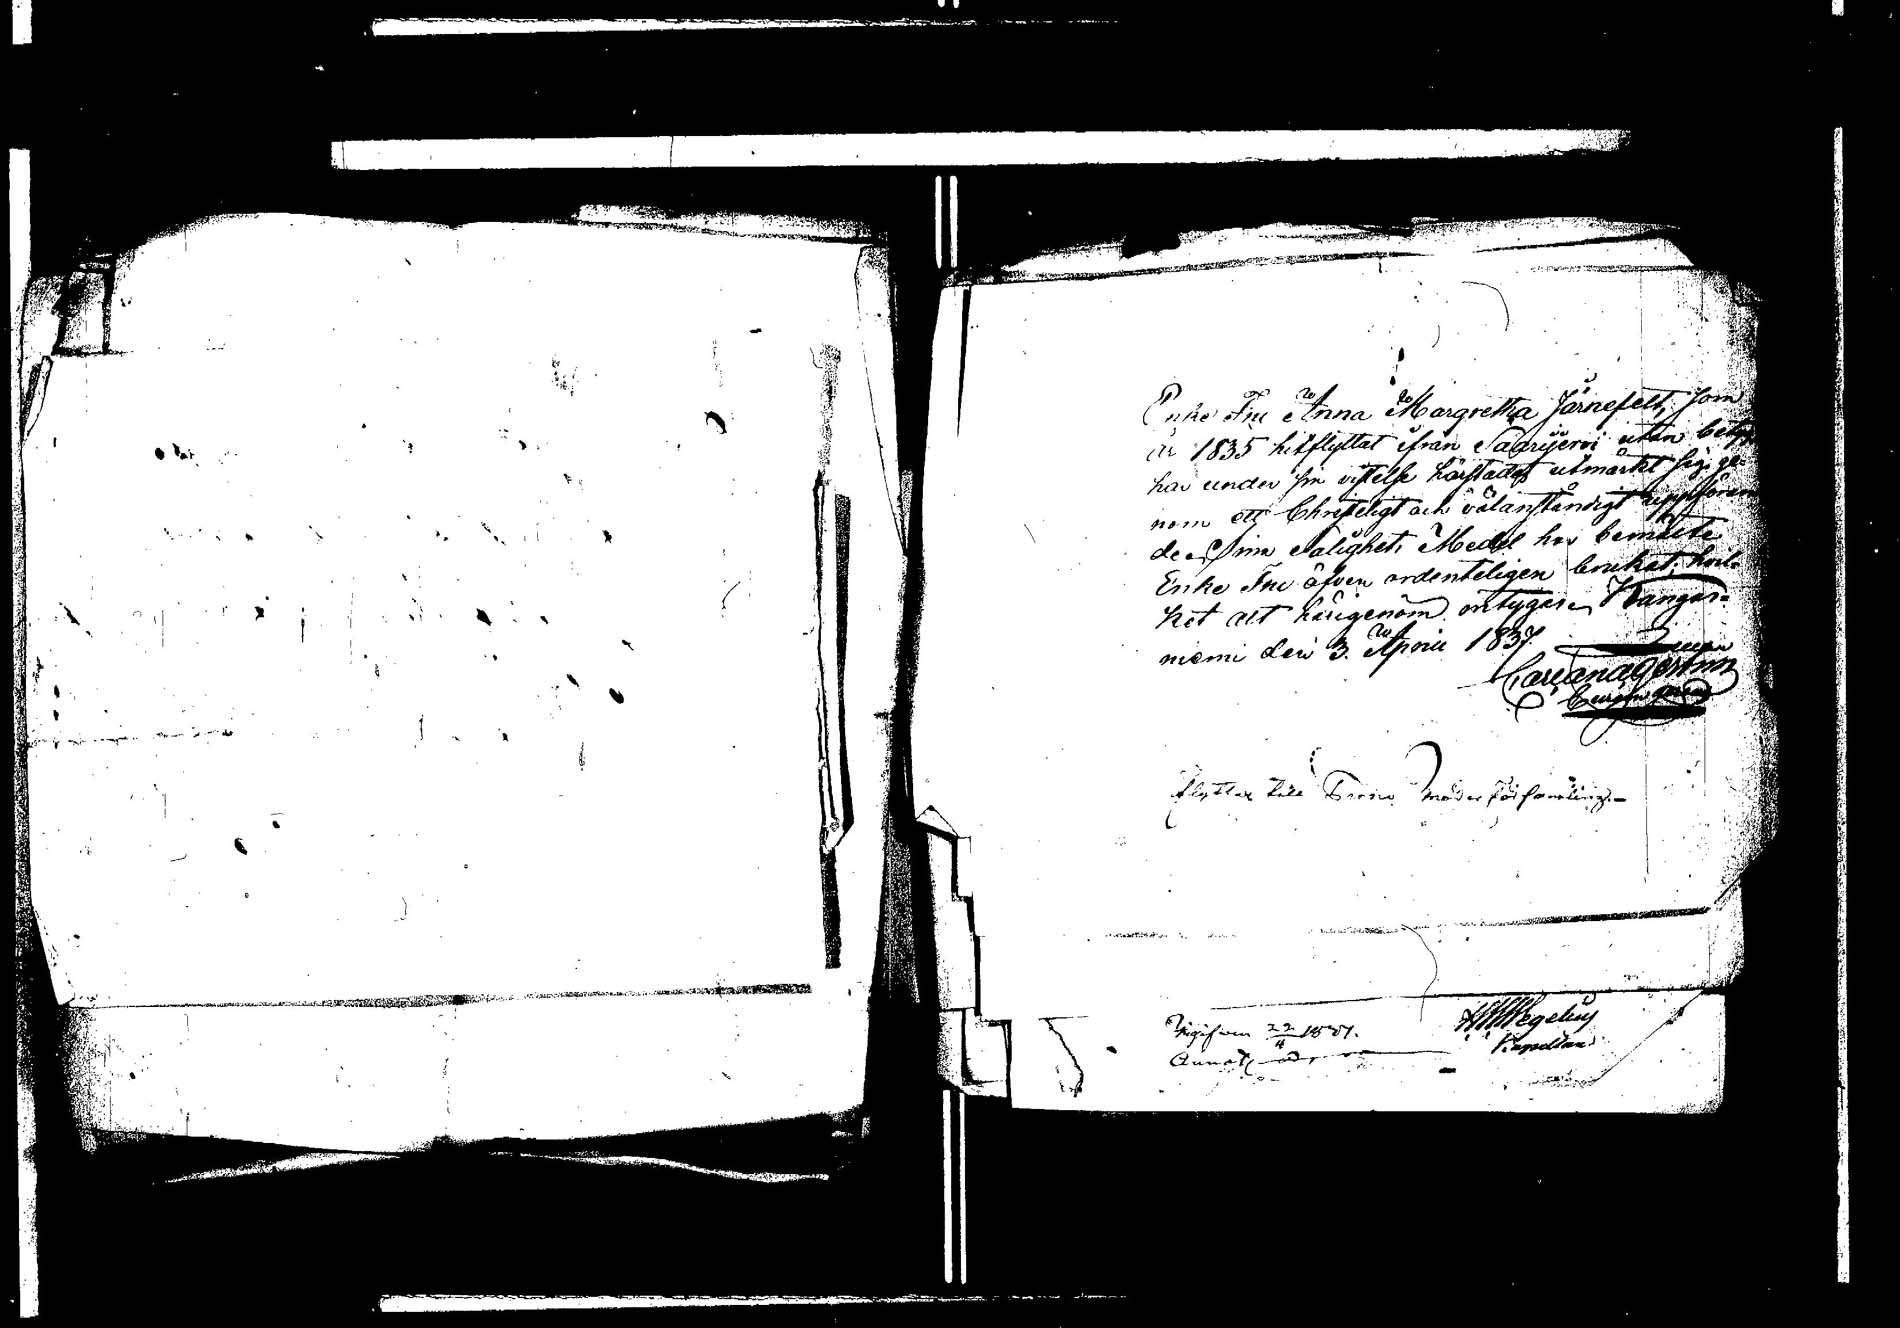 Enke Fru Anna Margretha Järnefelt, som
år 1835 hitflyttat ifrån Saarijervi utan betyg,
har under sin vistelse härstädes utmärkt sig ge-
nom ett Christeligt och välanständigt uppföran
de. Sina Salighets Medel har bemälte
Enke Fru äfven ordenteligen brukat; hvil-
ket att härigenom intygas. Kangas-
niemi den 3. April 1837.
flyttar till moder församling.-
22/4 1837.
Kapellan